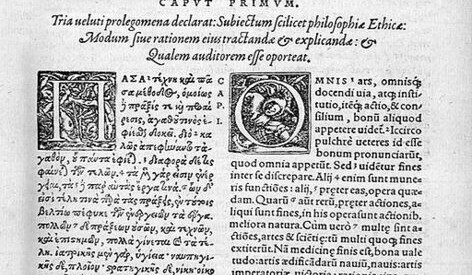 CAPVT PRIMVM.
Tria veluti prolegomena declarat: Subiectum scilicet philosophiæ Ethicæ:
Modum siue rationem eius tractandæ & explicandæ: &
Qualem auditorem esse oporteat.
ΠΑΣΑ τέχνη καὶ πᾶ
σα μέθοδος, ὁμοίως
δὲ πρᾶξίς τε καὶ προαί
ρεσις, ἀγαθοῦ τινὸς ἐ-
φίεσθαι δοκεῖ. διὸ κα
λῶς ἀπεφήναντο τἀ
γαθὸν, οὗ πάντα ἐφίε). διαφορὰ δέ τις
φαίνε) τῶν τελῶν. τὰ μὲν γάρ εἰσιν ἐνέρ
γειαι, τὰ δὲ παρ' αὐτὰς, ἔργα τινά. ὧν δ'
εἰσὶ τέλη τινὰ παρὰ τὰς πράξεις, ἐν τούτοις
βελτίω πέφυκε τῶν ἐνεργειῶν τὰ ἔργα.
πολλῶν δὲ πράξεων οὐσῶν, καὶ τεχνῶν,
καὶ ἐπιστημῶν, πολλὰ γίνεται καὶ τὰ τέ
λη. ἰατρικῆς μὲν γὰρ, ὑγίεια, ναυπηγι-
κῆς δὲ, πλοῖον, στρατηγικῆς δὲ, νίκη, οἰκο
CAP
I.
OMNIS ars, omnisq́;
docendi uia, atq; insti
tutio, itéq; actio, & con
silium, bonũ aliquod
appetere uidẽt̃. Iccirco
pulchrè ueteres id esse
bonum pronunciarũt,
quod omnia appetũt. Sed uidẽtur fines
inter se discrepare. Alij enim sunt mune
ris functiões: alij, præter eas, opera quæ-
dam. Quarũ aũt rerũ, præter actiones, a-
liqui sunt fines, in his opera sunt actionib.
meliora natura. Cùm uerò multæ sint a-
ctiones, artes & sciẽtiæ: tũ multi quoq; fines
existunt. Nã medicinæ finis est, bona ualetudo